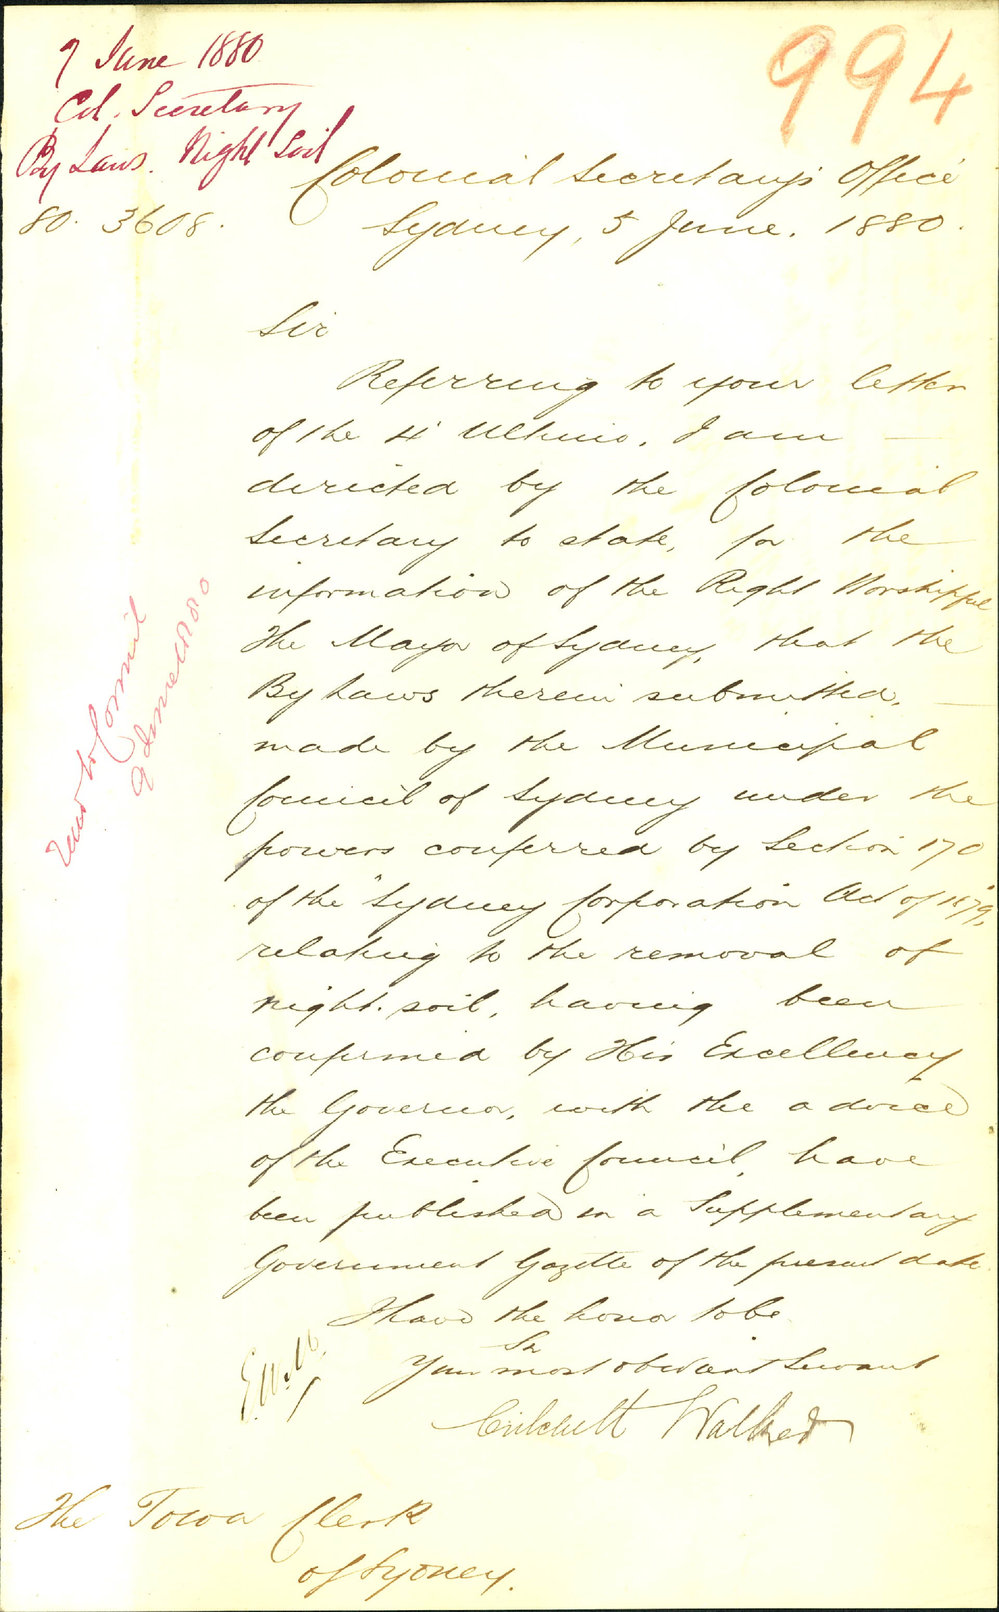 994
7 June 1880
Col. Secretary
By Laws. Night Soil
Colonial Secretary's Office
80. 3608.
Sydney, 5 June. 1880.
Sir
Referring to your letter
of the 4' Ultimo, I am
directed by the Colonial
Secretary to state, for the
information of the Right Worshipful
The Mayor of Sydney, that the
By Laws therein submitted,
made by the Municipal
Council of Sydney under the
powers conferred by Section 170
of the "Sydney Corporation Act of 1879",
relating to the removal of
night-soil, having been
confirmed by His Excellency
the Governor, with the advice
of the Executive Council, have
been published in a Supplementary
Government Gazette of the present date.
I have the honor to be
Sir
Your most obedient Servant
Critchett Walker
The Town Clerk
of Sydney.
to Commit
9 June 1880